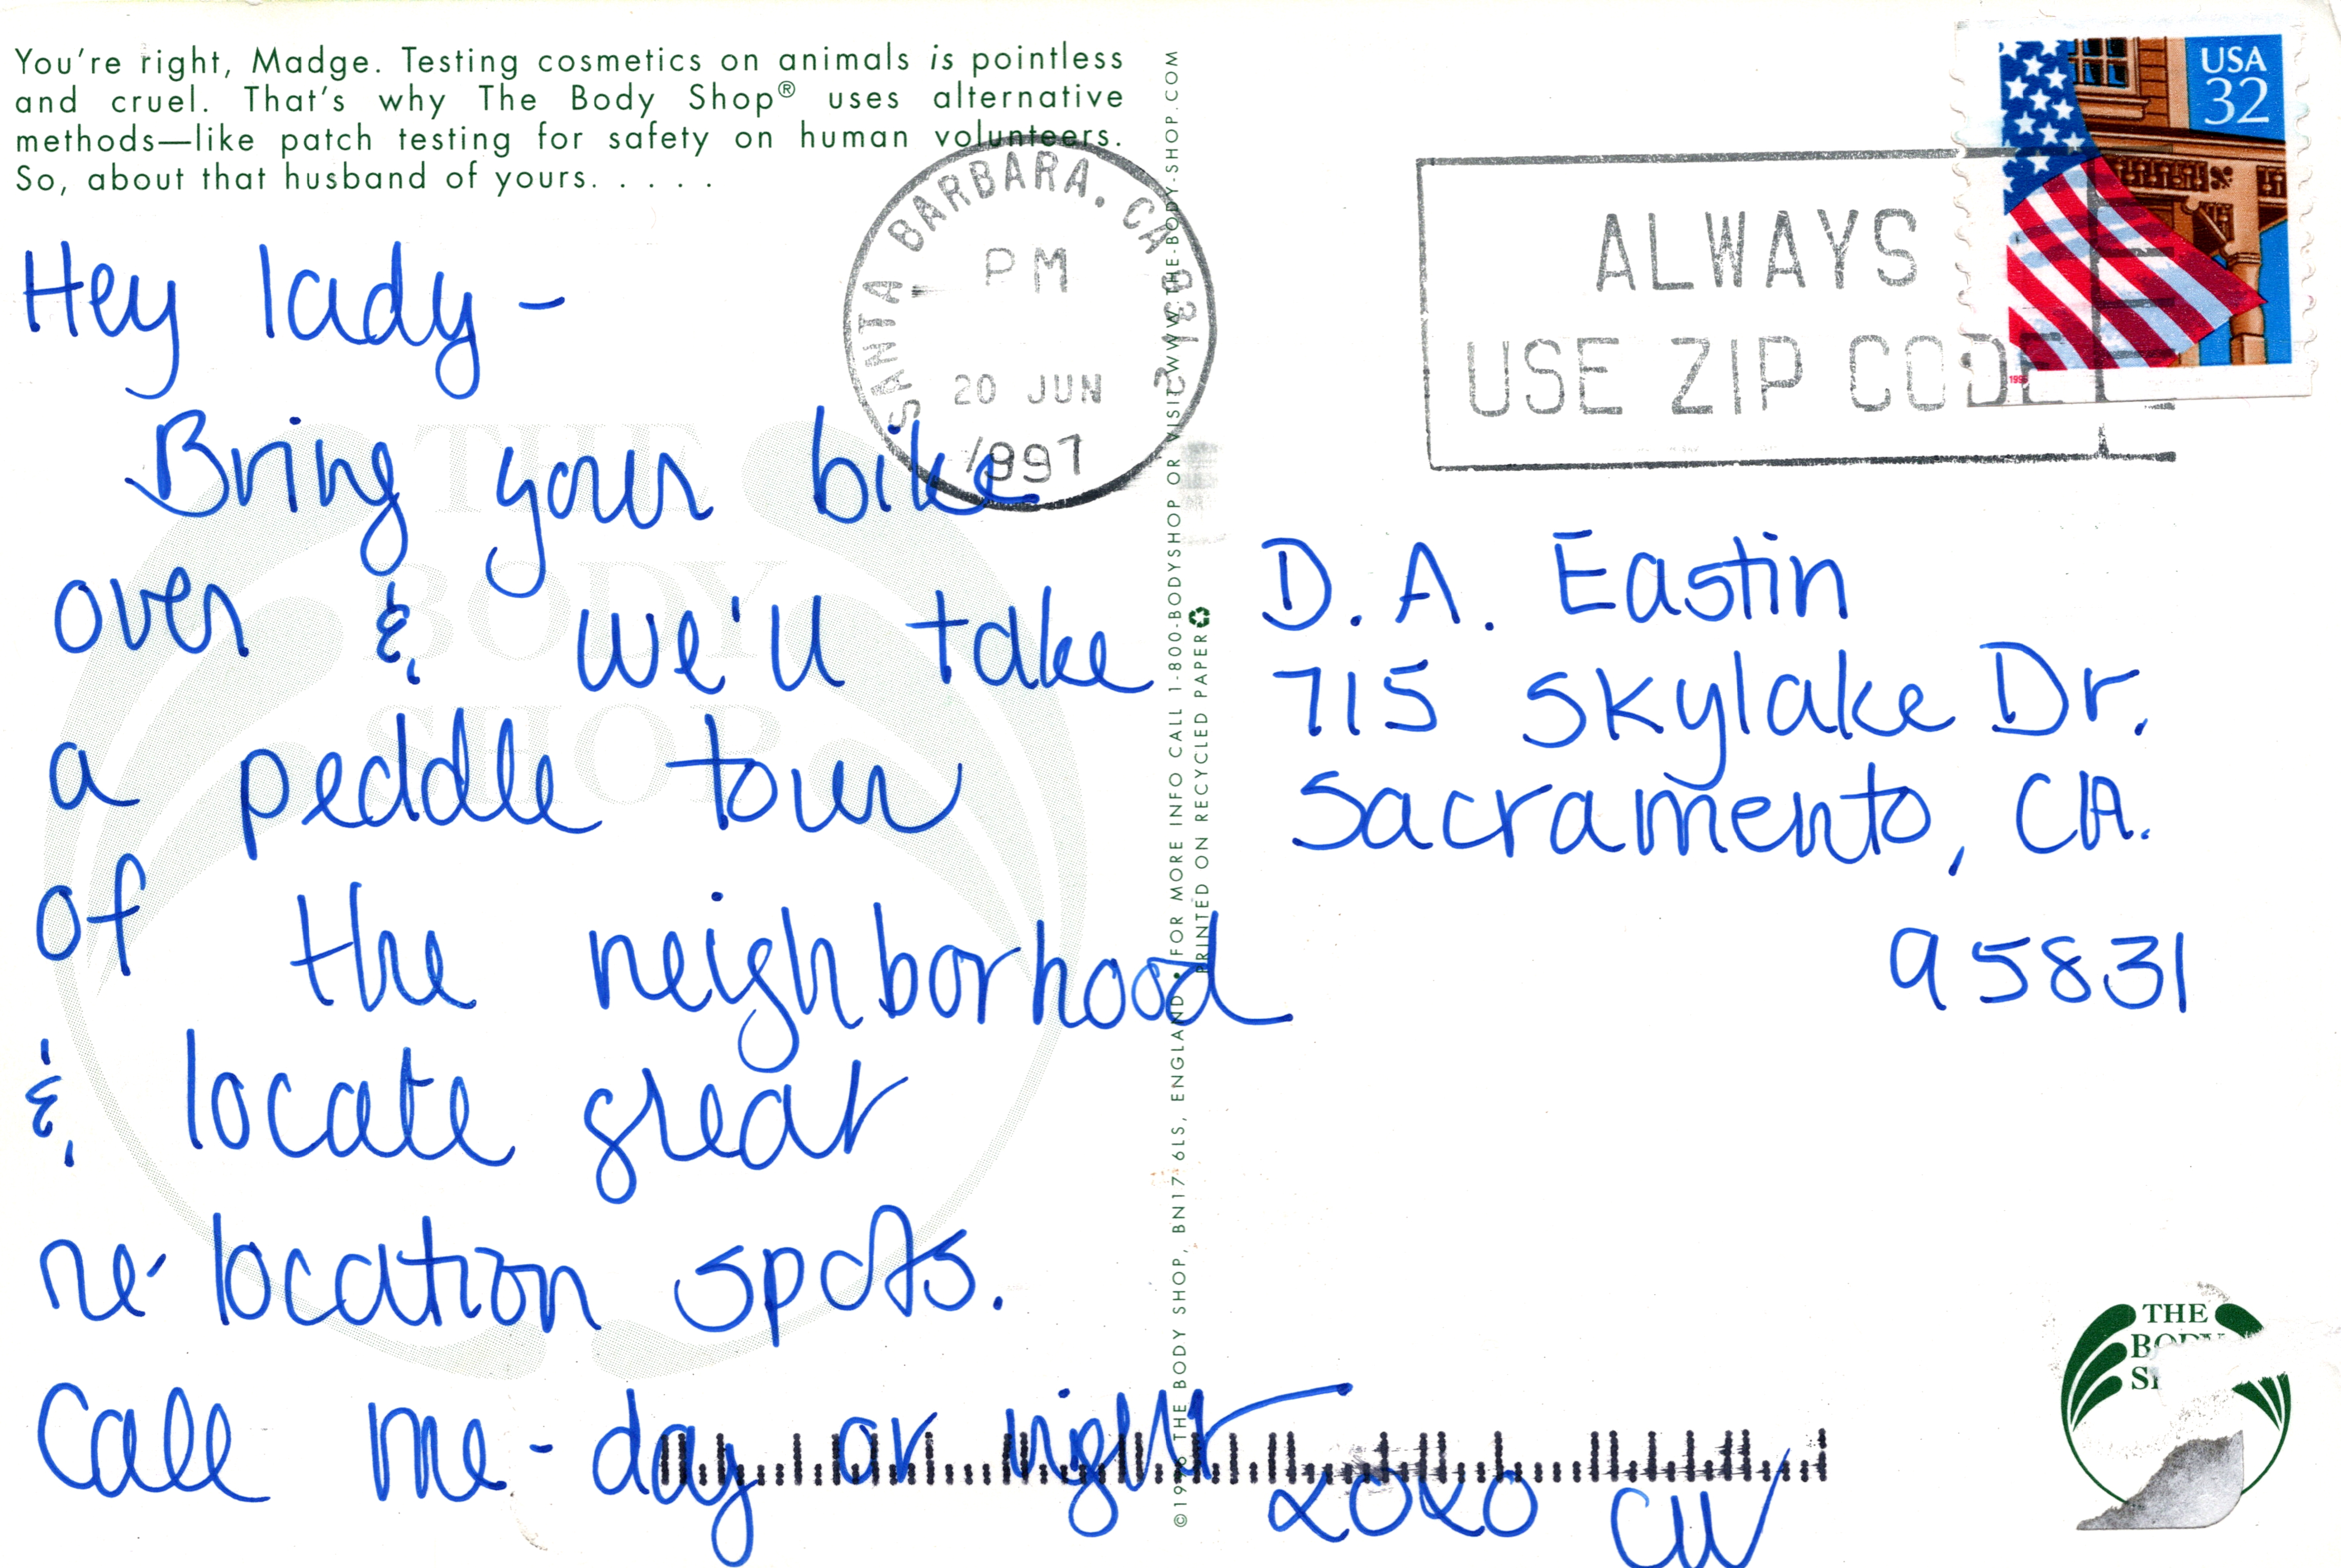 You're right, Madge. Testing cosmetics on animals is pointless
and cruel. That's why The Body Shop® uses alternative
methods—like patch testing for safety on human volunteers.
So, about that husband of yours. . . . .
Hey lady -
Bring your bike
over & we'll take
a peddle tour
of the neighborhood
& locate great
re-location spots.
Call me - day or night
xoxo CW
SANTA BARBARA, CA
PM
20 JUN
1997
©1996 THE BODY SHOP, BN17 6LS, ENGLAND • FOR MORE INFO CALL 1-800-BODYSHOP OR VISIT WWW.THE-BODY-SHOP.COM
PRINTED ON RECYCLED PAPER
ALWAYS
USE ZIP CODE
USA
32
D. A. Eastin
715 Skylake Dr.
Sacramento, CA.
95831
THE
BODY
SHOP
THE